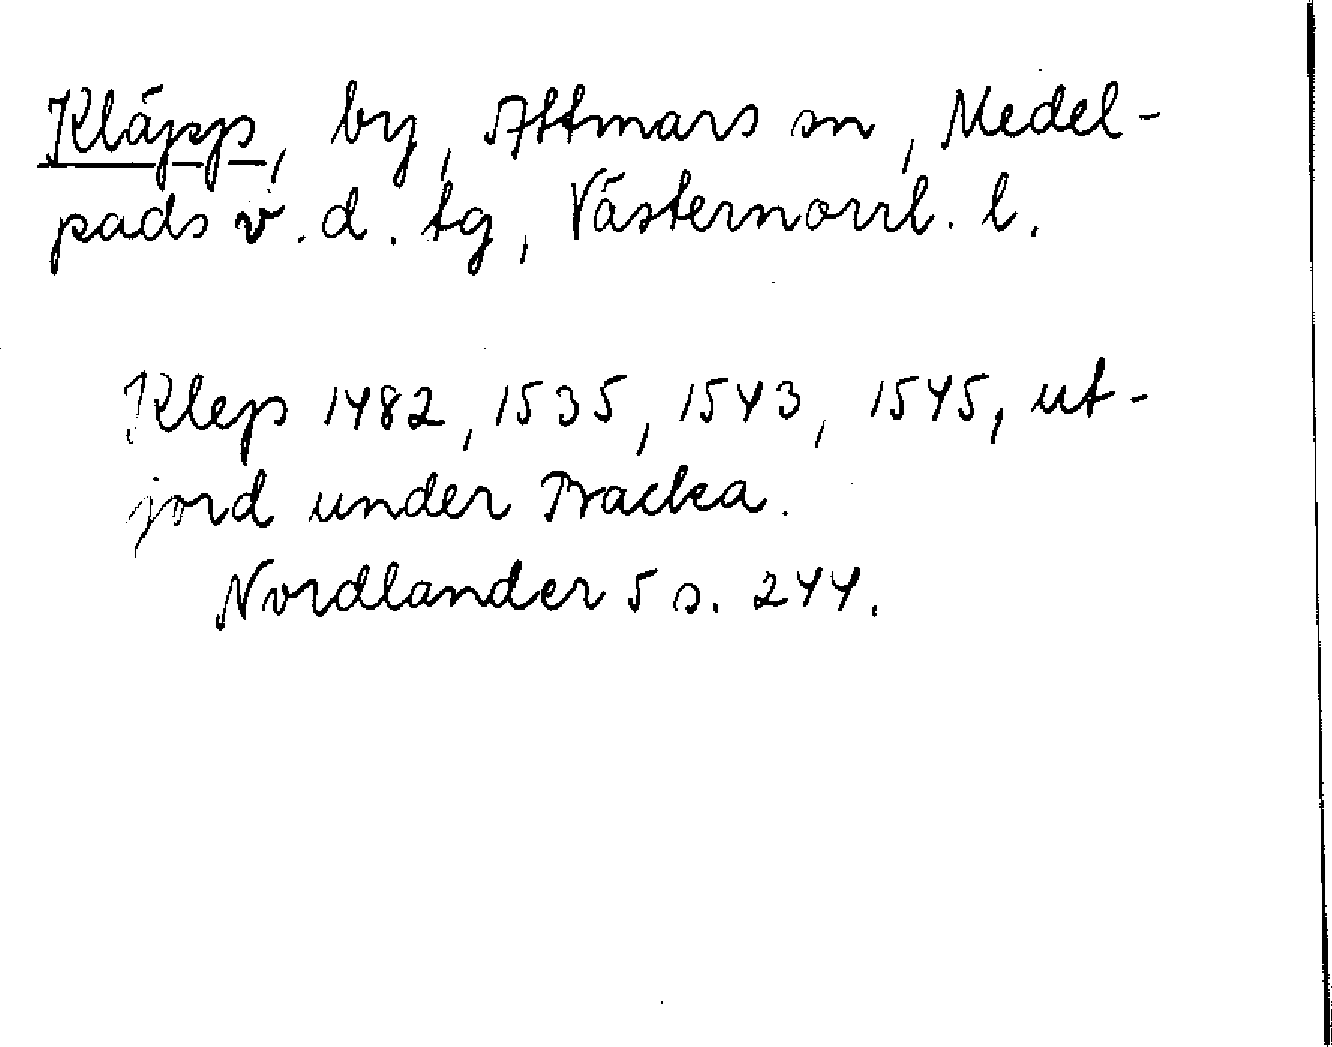 Kläpp, by, Attmars sn, Medel-
pads v. d. tg, Västernorrl. l.
Klep 1482, 1535, 1543, 1545, ut-
jord under Bracka.
Nordlander 5 s. 244.